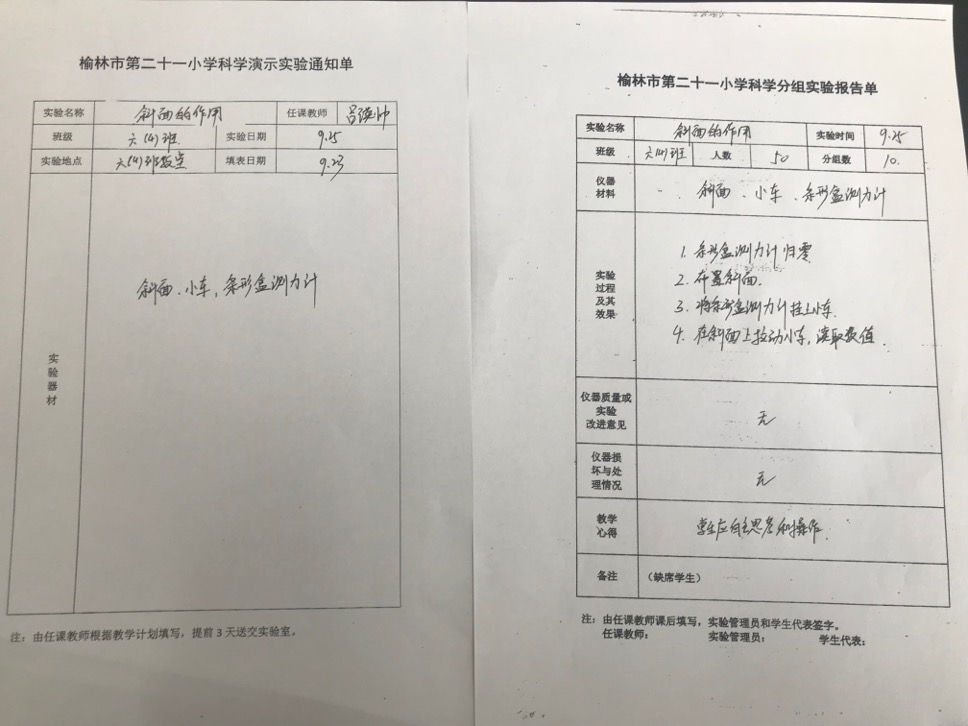 榆林市第二十一小学科学演示实验通知单
实验名称 斜面的作用 任课教师
班级 六(4)班 实验日期 9.25
实验地点 六(4)班教室 填表日期 9.23
实验器材
斜面、小车、条形盒测力计
注：由任课教师根据教学计划填写，提前3天送交实验室。
榆林市第二十一小学科学分组实验报告单
实验名称 斜面的作用 实验时间 9.25
班级 六(4)班 人数 50 分组数 10.
仪器材料 斜面、小车、条形盒测力计
实验过程及其效果
1. 条形盒测力计归零
2. 布置斜面.
3. 将条形盒测力计挂上小车.
4. 在斜面上拉动小车，读取数值.
仪器质量或实验改进意见 无
仪器损坏与处理情况 无
教学心得 学生应自主思考和操作.
备注 （缺席学生）
注：由任课教师课后填写，实验管理员和学生代表签字。
任课教师： 实验管理员： 学生代表：